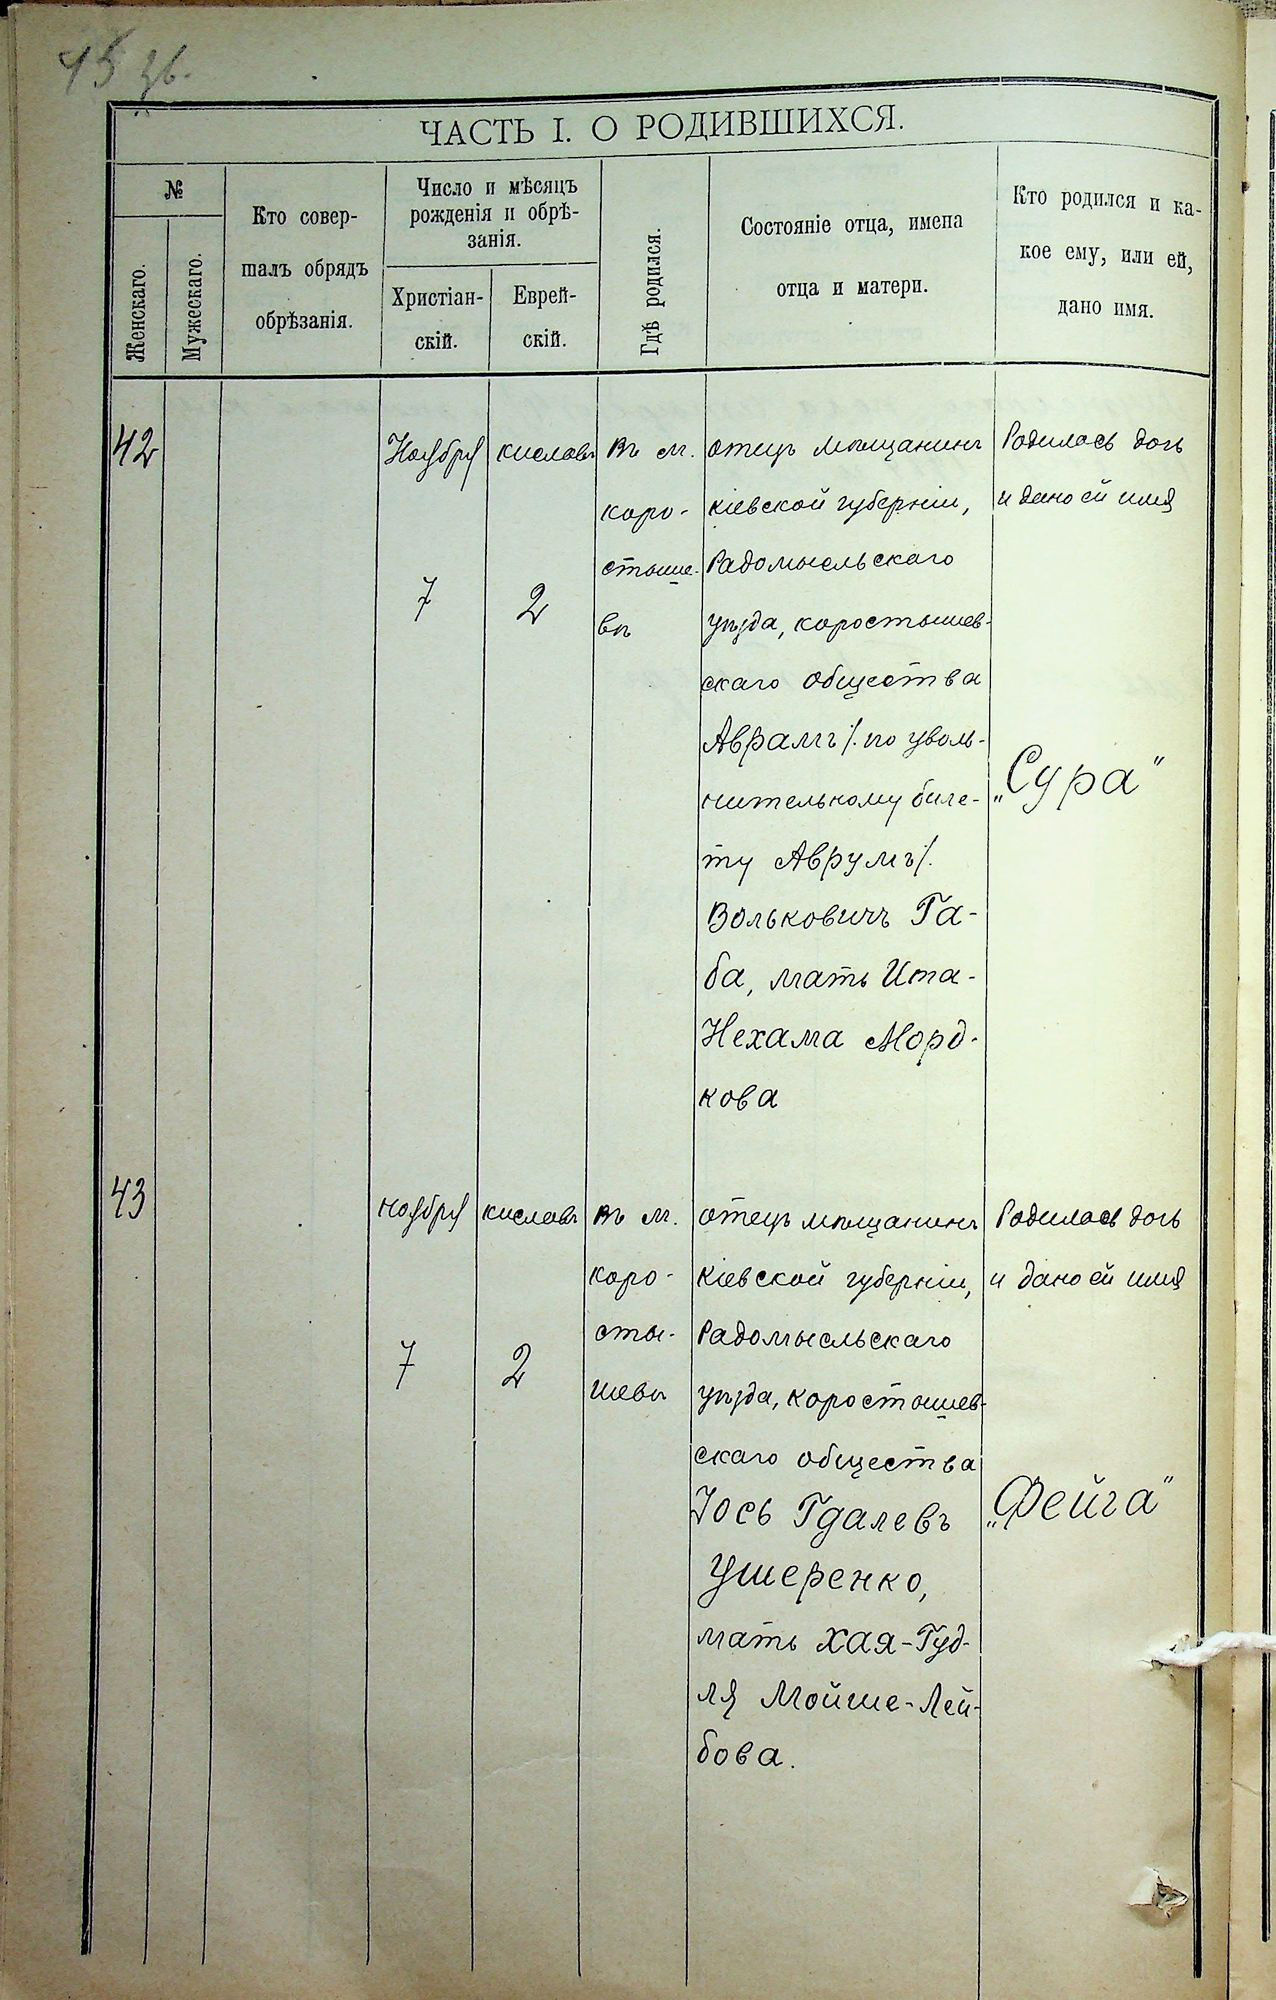 45 зв.
ЧАСТЬ I. О РОДИВШИХСЯ.
№
Женскаго.
Мужескаго.
Кто совер-
шалъ обрядъ
обрѣзанія.
Число и мѣсяцъ
рожденія и обрѣ-
занія.
Христіан-
скій.
Еврей-
скій.
Гдѣ родился.
Состояніе отца, имена
отца и матери.
Кто родился и ка-
кое ему, или ей,
дано имя.
42
Ноября
7
кислевъ
2
Въ м.
коро-
стыше-
вѣ
отецъ мѣщанинъ
кіевской губерніи,
Радомысльскаго
уѣзда, коростышев-
скаго общества
Аврамъ /. по уволь-
нительному биле-
ту Аврумъ /.
Вольковичъ Га-
ба, мать Ита-
Нехама Морд-
кова
Родилась дочь
и дано ей имя
„Сура"
43
ноября
7
кислевъ
2
Въ м.
коро-
сты-
шевѣ
отецъ мѣщанинъ
Кіевской губерніи,
Радомысльскаго
уѣзда, коростышев-
скаго общества
Іось Гдалевъ
Ушеренко,
мать Хая-Гуд-
ля Мойше-Лей-
бова.
Родилась дочь
и дано ей имя
„Фейга"